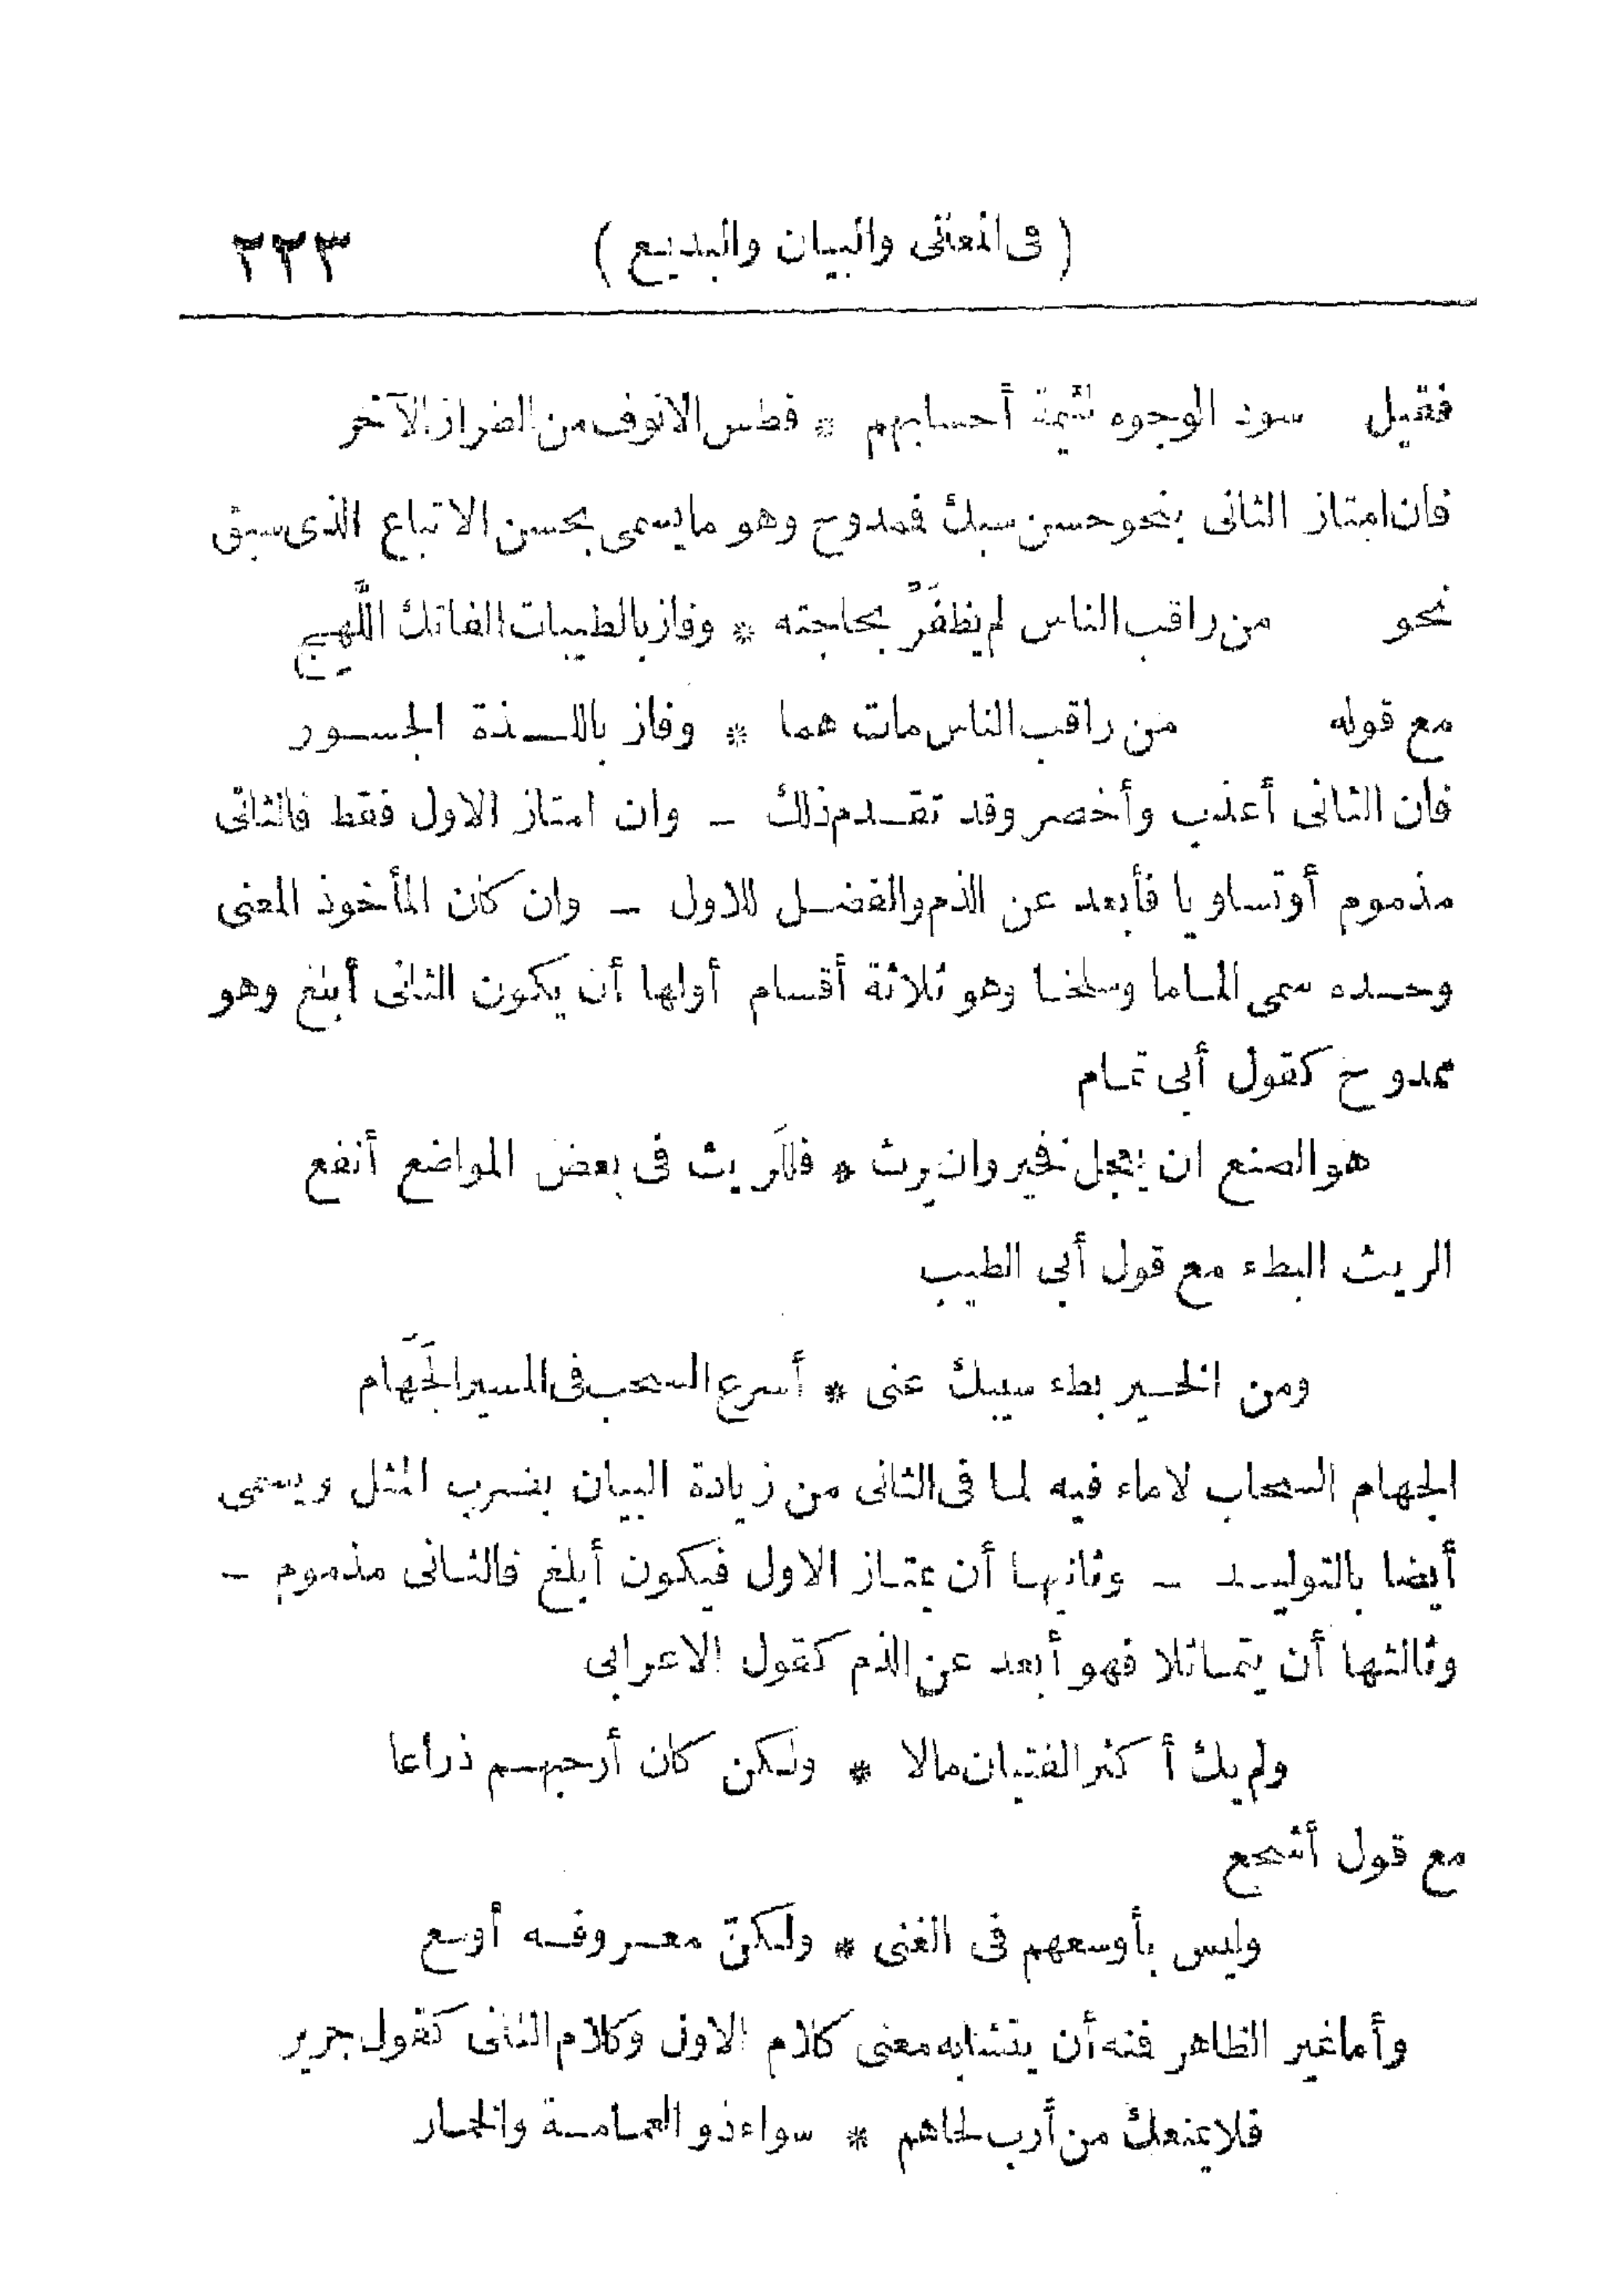 (فى المعانى والبيان والبديع) ٢٢٣
فقيل سود الوجوه لئيمة أحسابهم * فطس الانوف من الطراز الآخر
فان امتاز الثانى بنحو حسن سبك فمدوح وهو ما يسمى بحسن الاتباع الذى سبق
نحو من راقب الناس لم يظفَرْ بحاجته * وفاز بالطيبات الفاتك اللَّهِج
مع قوله من راقب الناس مات هما * وفاز باللذة الجسور
فان الثانى أعذب وأخصر وقد تقدم ذلك ـ وان امتاز الاول فقط فالثانى
مذموم أو تساويا فأبعد عن الذم والفضل للاول ـ وان كان المأخوذ المعنى
وحده سمى الماما وسلخا وهو ثلاثة أقسام أولها أن يكون الثانى أبلغ وهو
ممدوح كقول أبى تمام
هو الصنع ان يعجل فخير وان يرث * فلَلريث فى بعض المواضع أنفع
الريث البطء مع قول أبى الطيب
ومن الخير بطء سيبك عنى * أسرع السحب فى المسير الجَهَام
الجهام السحاب لا ماء فيه لما فى الثانى من زيادة البيان بضرب المثل ويسمى
أيضا بالتوليد ـ وثانيها أن يمتاز الاول فيكون أبلغ فالثانى مذموم ـ
وثالثها أن يتماثلا فهو أبعد عن الذم كقول الاعرابى
ولم يك أكثر الفتيان مالا * ولكن كان أرحبهم ذراعا
مع قول أشجع
وليس بأوسعهم فى الغنى * ولكنّ معروفه أوسع
وأما غير الظاهر فمنه أن يتشابه معنى كلام الاول وكلام الثانى كقول جرير
فلا يمنعك من أرب لحاهم * سواء ذو العمامة والخمار